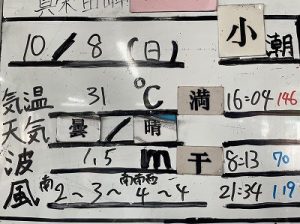 10/8(日) 小潮
気温 31 ℃ 満 16:04 146
天気 曇/晴
波 1.5 m 干 8:13 70
風 南2~3~南南西4~4 21:34 119